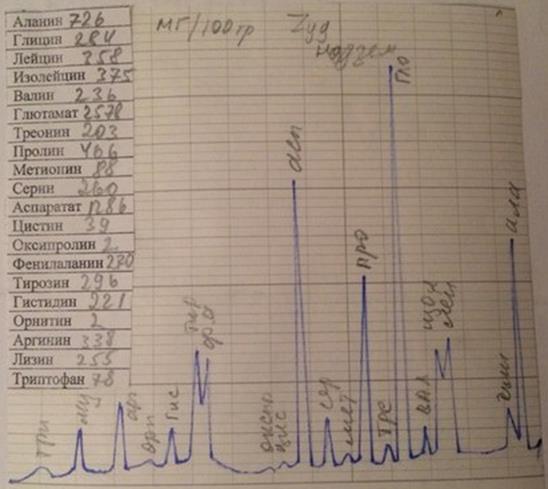 Аланин 726
Глицин 284
Лейцин 358
Изолейцин 375
Валин 236
Глютамат 2578
Треонин 203
Пролин 466
Метионин 88
Серин 260
Аспаратат 1286
Цистин 39
Оксипролин 2
Фенилаланин 270
Тирозин 296
Гистидин 221
Орнитин 2
Аргинин 338
Лизин 255
Триптофан 78
мг/100гр
Зуд
надзем
три
лиз
арг
орн
гис
тир
фа
оксипр
цис
асп
сер
мет
про
тре
глю
вал
изол
лей
глиц
ала